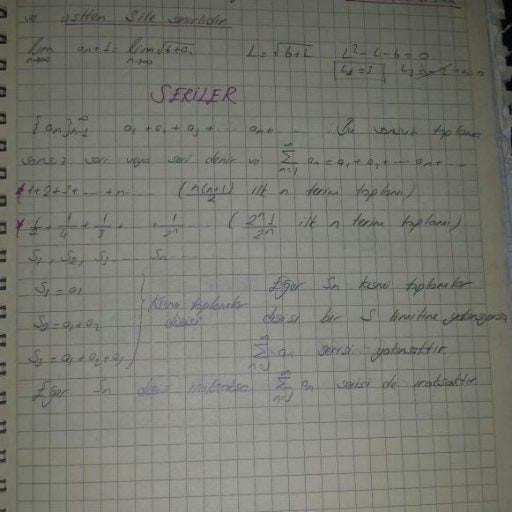 ve üstten 3 ile sınırlıdır
lim n→∞ an+1 = lim n→∞ √6+an L = √6+L L² - L - 6 = 0
L1 = 3
SERİLER
{an}∞n=1 a1 + a2 + a3 + ... an + ... Bu sonsuz toplama
sonsuz seri veya seri denir ve ∞Σn=1 an = a1 + a2 + ... an + ...
* 1+2+3+ ... +n ... (n(n+1)/2 ilk n terim toplamı)
* 1/2 + 1/4 + 1/8 + ... 1/2ⁿ (2ⁿ-1/2ⁿ ilk n terim toplamı)
S1, S2, S3 ... Sn ...
S1 = a1 Eğer Sn kısmi toplamlar
S2 = a1+a2 Kısmi toplamlar dizisi dizisi bir S limitine yakınsıyorsa
S3 = a1+a2+a3 ∞Σn=1 an serisi yakınsaktır
Eğer Sn dizisi ıraksaksa ∞Σn=1 an serisi de ıraksaktır